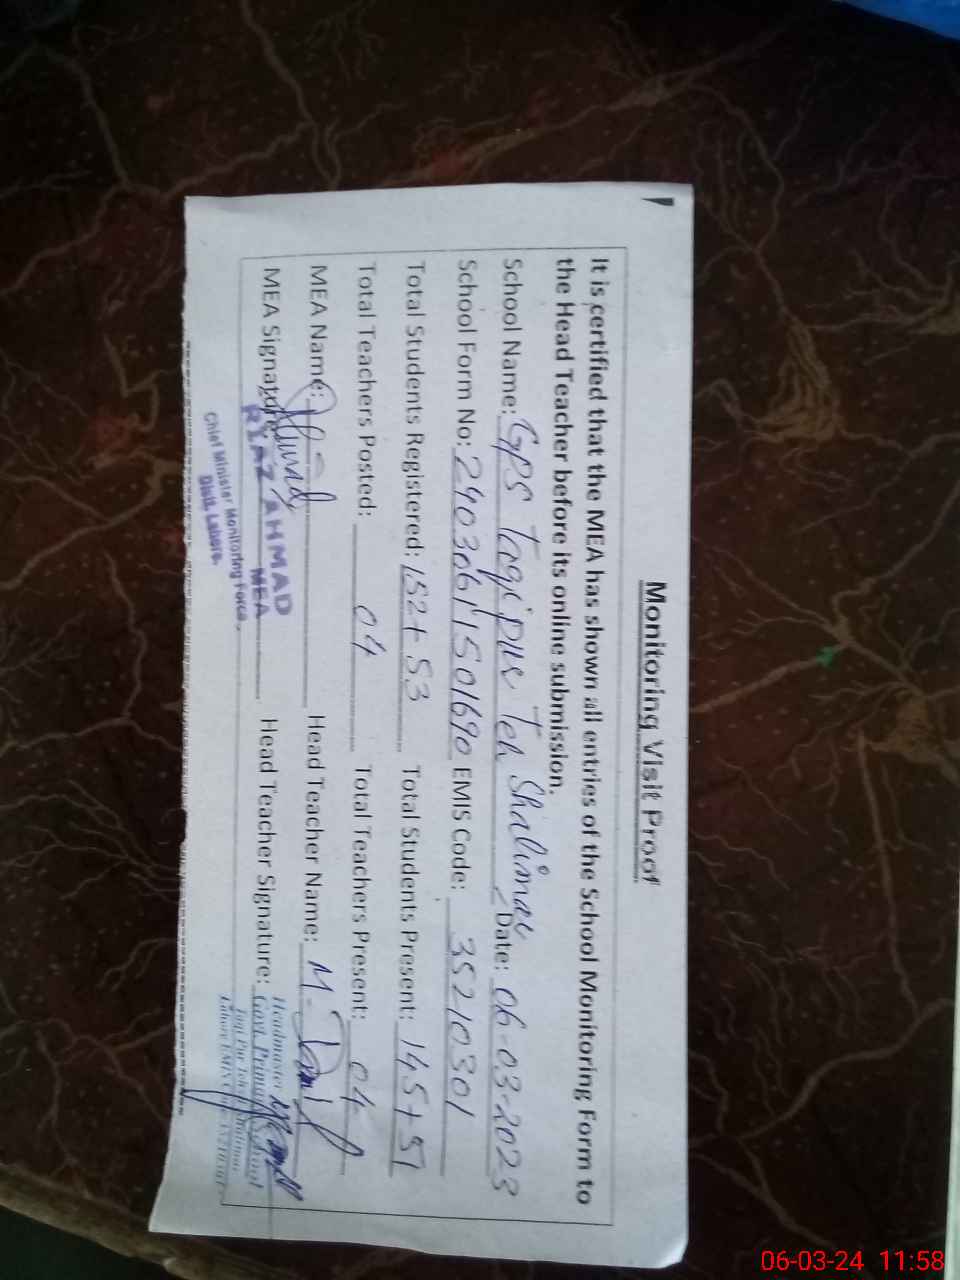 Monitoring Visit Proof
It is certified that the MEA has shown all entries of the School Monitoring Form to
the Head Teacher before its online submission.
School Name: GPS Togipur Teh Shalimar Date: 06-03-2023
School Form No: 24030611501690 EMIS Code: 35210301
Total Students Registered: 152+53 Total Students Present: 145+51
Total Teachers Posted: 04 Total Teachers Present: 04
MEA Name: Head Teacher Name: M.
MEA Signature: Head Teacher Signature:
RIAZ AHMAD
MEA
Chief Minister Monitoring Force
Distt. Lahore.
Headmaster
Govt. Primary School
06-03-24 11:58